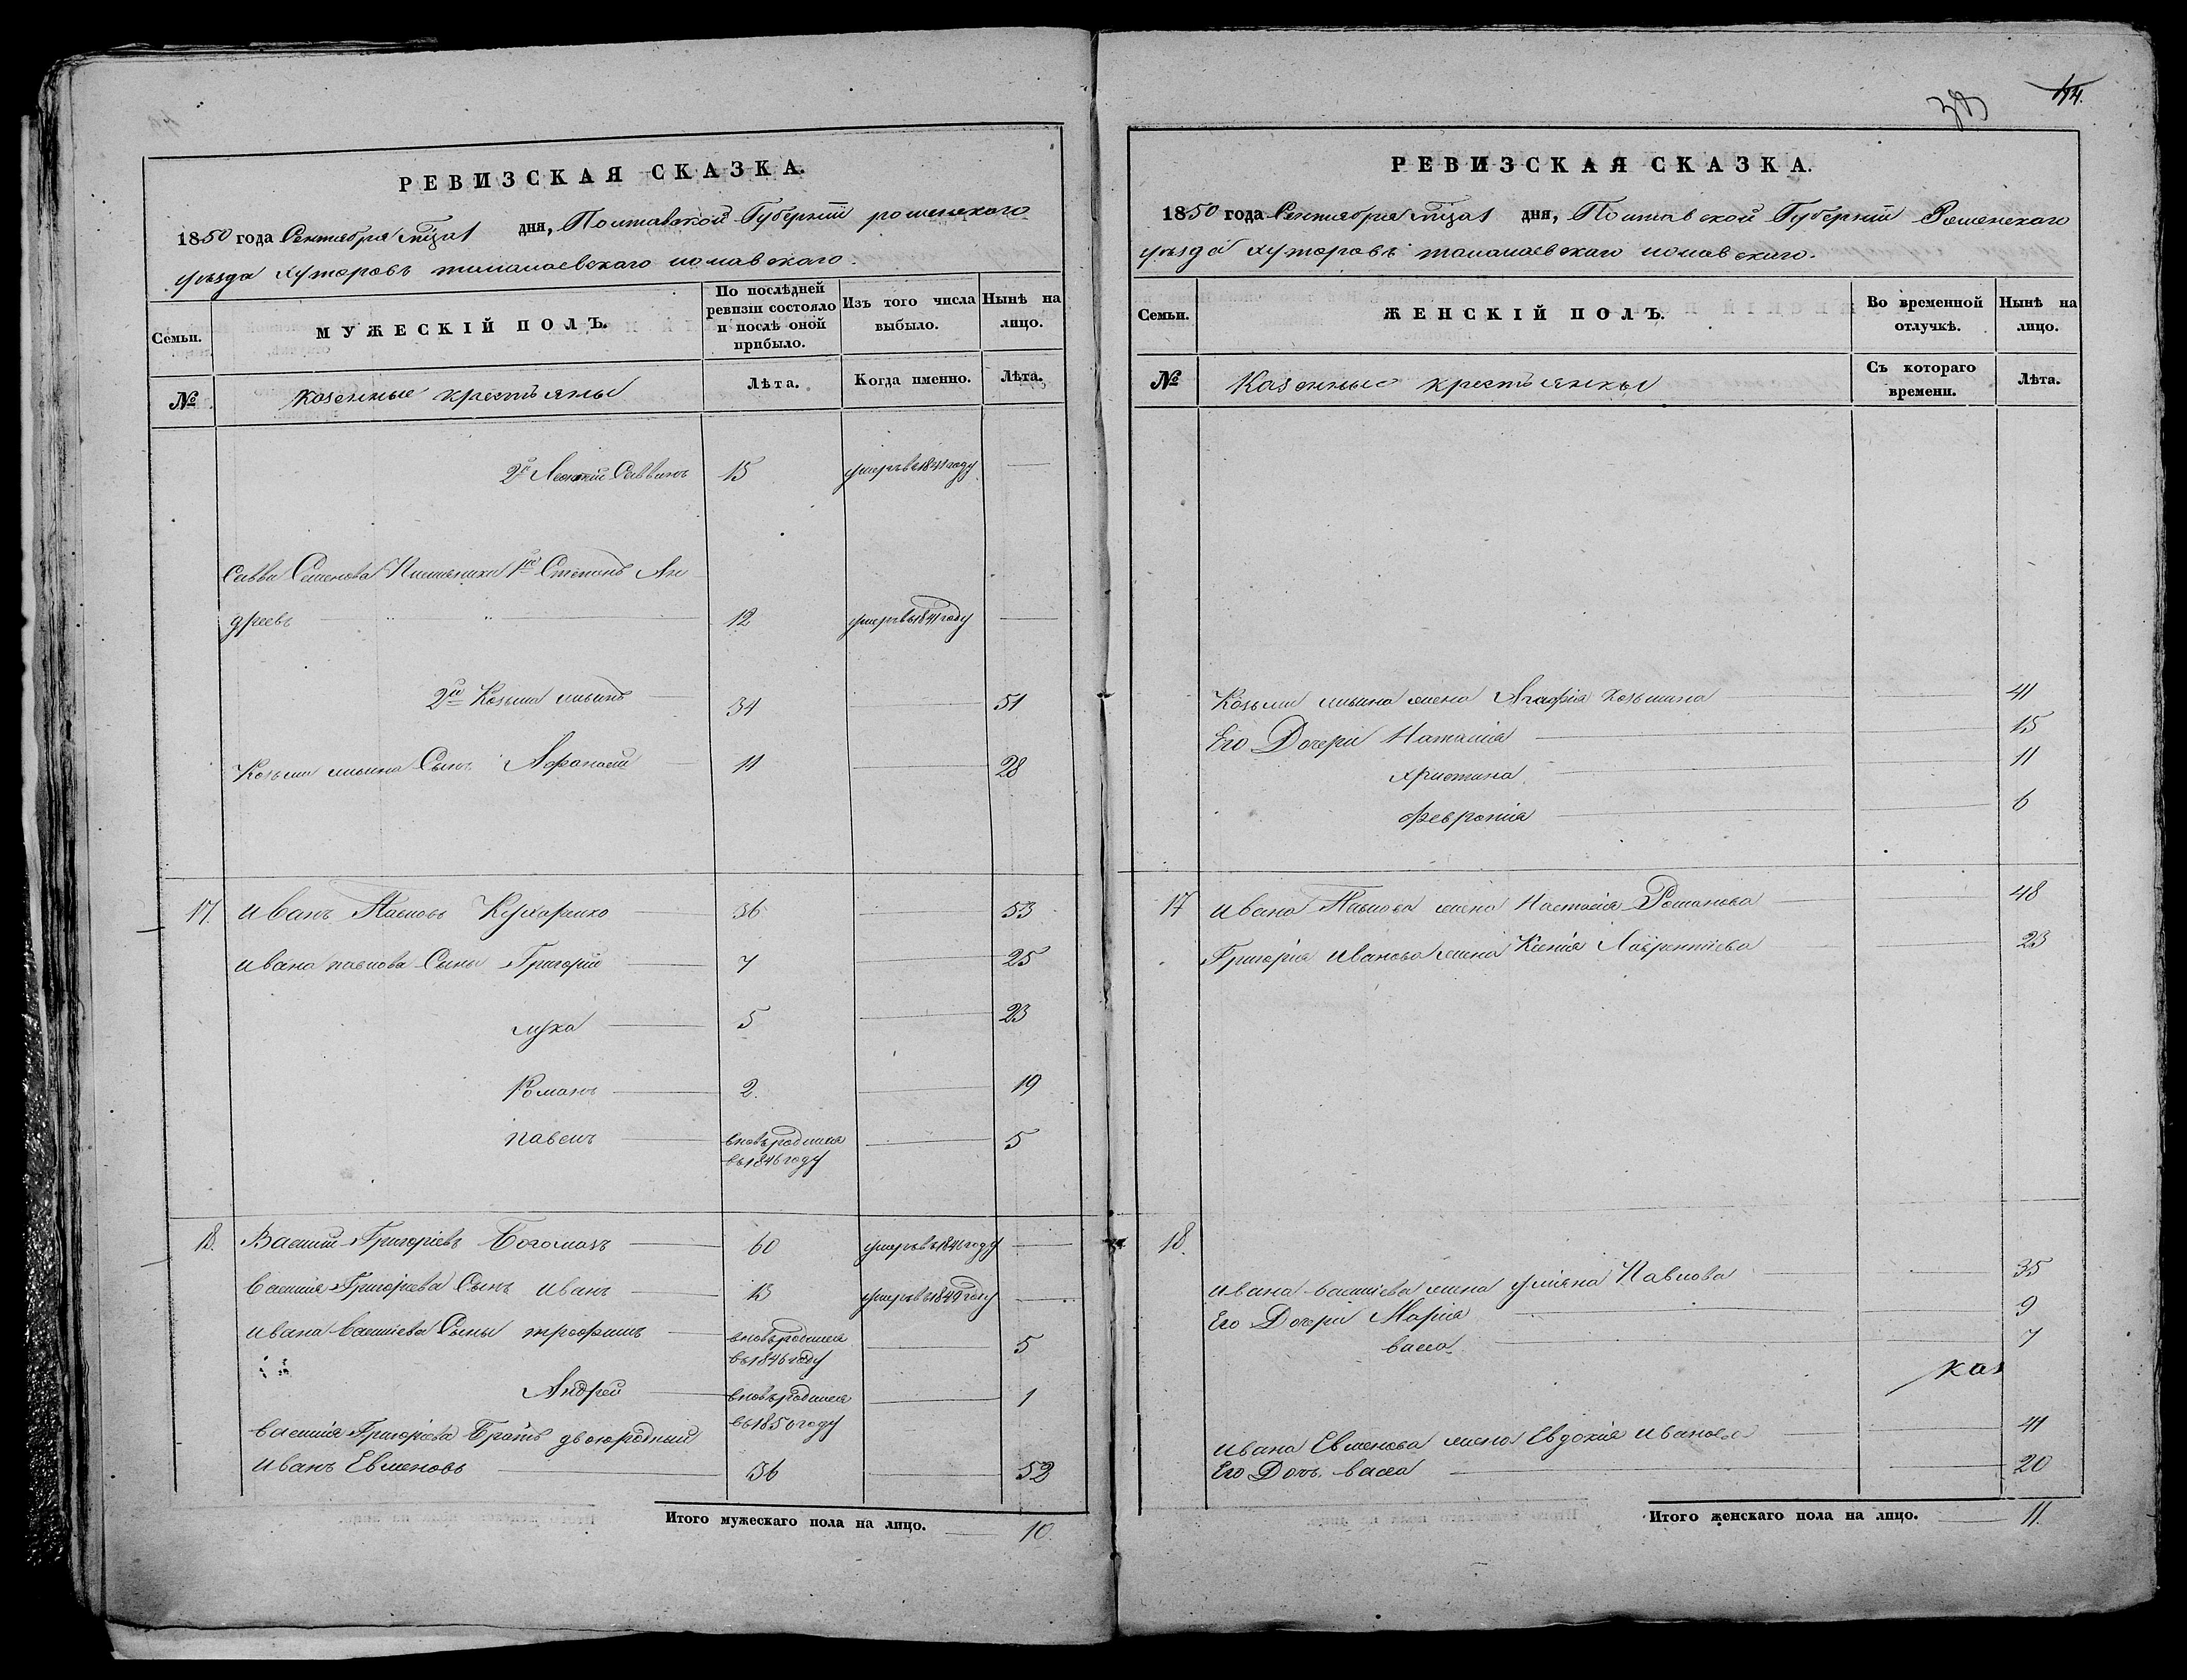 РЕВИЗСКАЯ СКАЗКА.
1850 года Сентября 1 дня, Полтавской Губерніи роменскаго
уѣзда хуторовъ талалаевскаго
Семьи.
МУЖЕСКІЙ ПОЛЪ.
По послѣдней ревизіи состояло и послѣ оной прибыло.
Изъ того числа выбыло.
Нынѣ на лицо.
№
Казенные крестьяны
Лѣта.
Когда именно.
Лѣта.
2й Леонтій Саввинъ 15 умеръ въ 1841 году
Савви Семенова Племяники 1й Степанъ Ан
дреевъ 12 умеръ въ 1841 году
2й Козьма ильинъ 34 51
Козьми ильина Сынъ Афанасій 11 28
17. Иванъ Павловъ Кухаренко 36 53
Ивана павлова Сыны Григорій 7 25
лука 5 23
Романъ 2. 19
павелъ вновьродился въ 1846 году 5
18. Василій Григоріевъ Богомазъ 60 умеръ въ 1846 году
василія Григорьева Сынъ иванъ 13 умеръ въ 1849 году
ивана васильева Сыны трофимъ вновьродился въ 1846 году 5
Андрей вновьродился въ 1850 году 1
василія Григоріева Братъ двоюродный
иванъ Евменовъ 36 52
Итого мужескаго пола на лицо. 10.
44.
РЕВИЗСКАЯ СКАЗКА.
1850 года Сентября 1 дня, Полтавской Губерніи Роменскаго
уѣзда хуторовъ талалаевскаго
Семьи.
ЖЕНСКІЙ ПОЛЪ.
Во временной отлучкѣ.
Нынѣ на лицо.
№
Казенные крестьянкы
Съ котораго времени.
Лѣта.
Козьми ильина жена Агафія козьмина 41
Его Дочери Наталія 15
христина 11
февронія 6
17 ивана Павлова жена Настасія Романова 48
Григорія иванова жена Ксенія Лаврентіева 23
18.
ивана васильева жена уліяна Павлова 35
Его Дочери Марія 9
васса 7
каз
ивана Евменова жена Евдокія иванова 41
Его Дочь васса 20
Итого женскаго пола на лицо. 11.